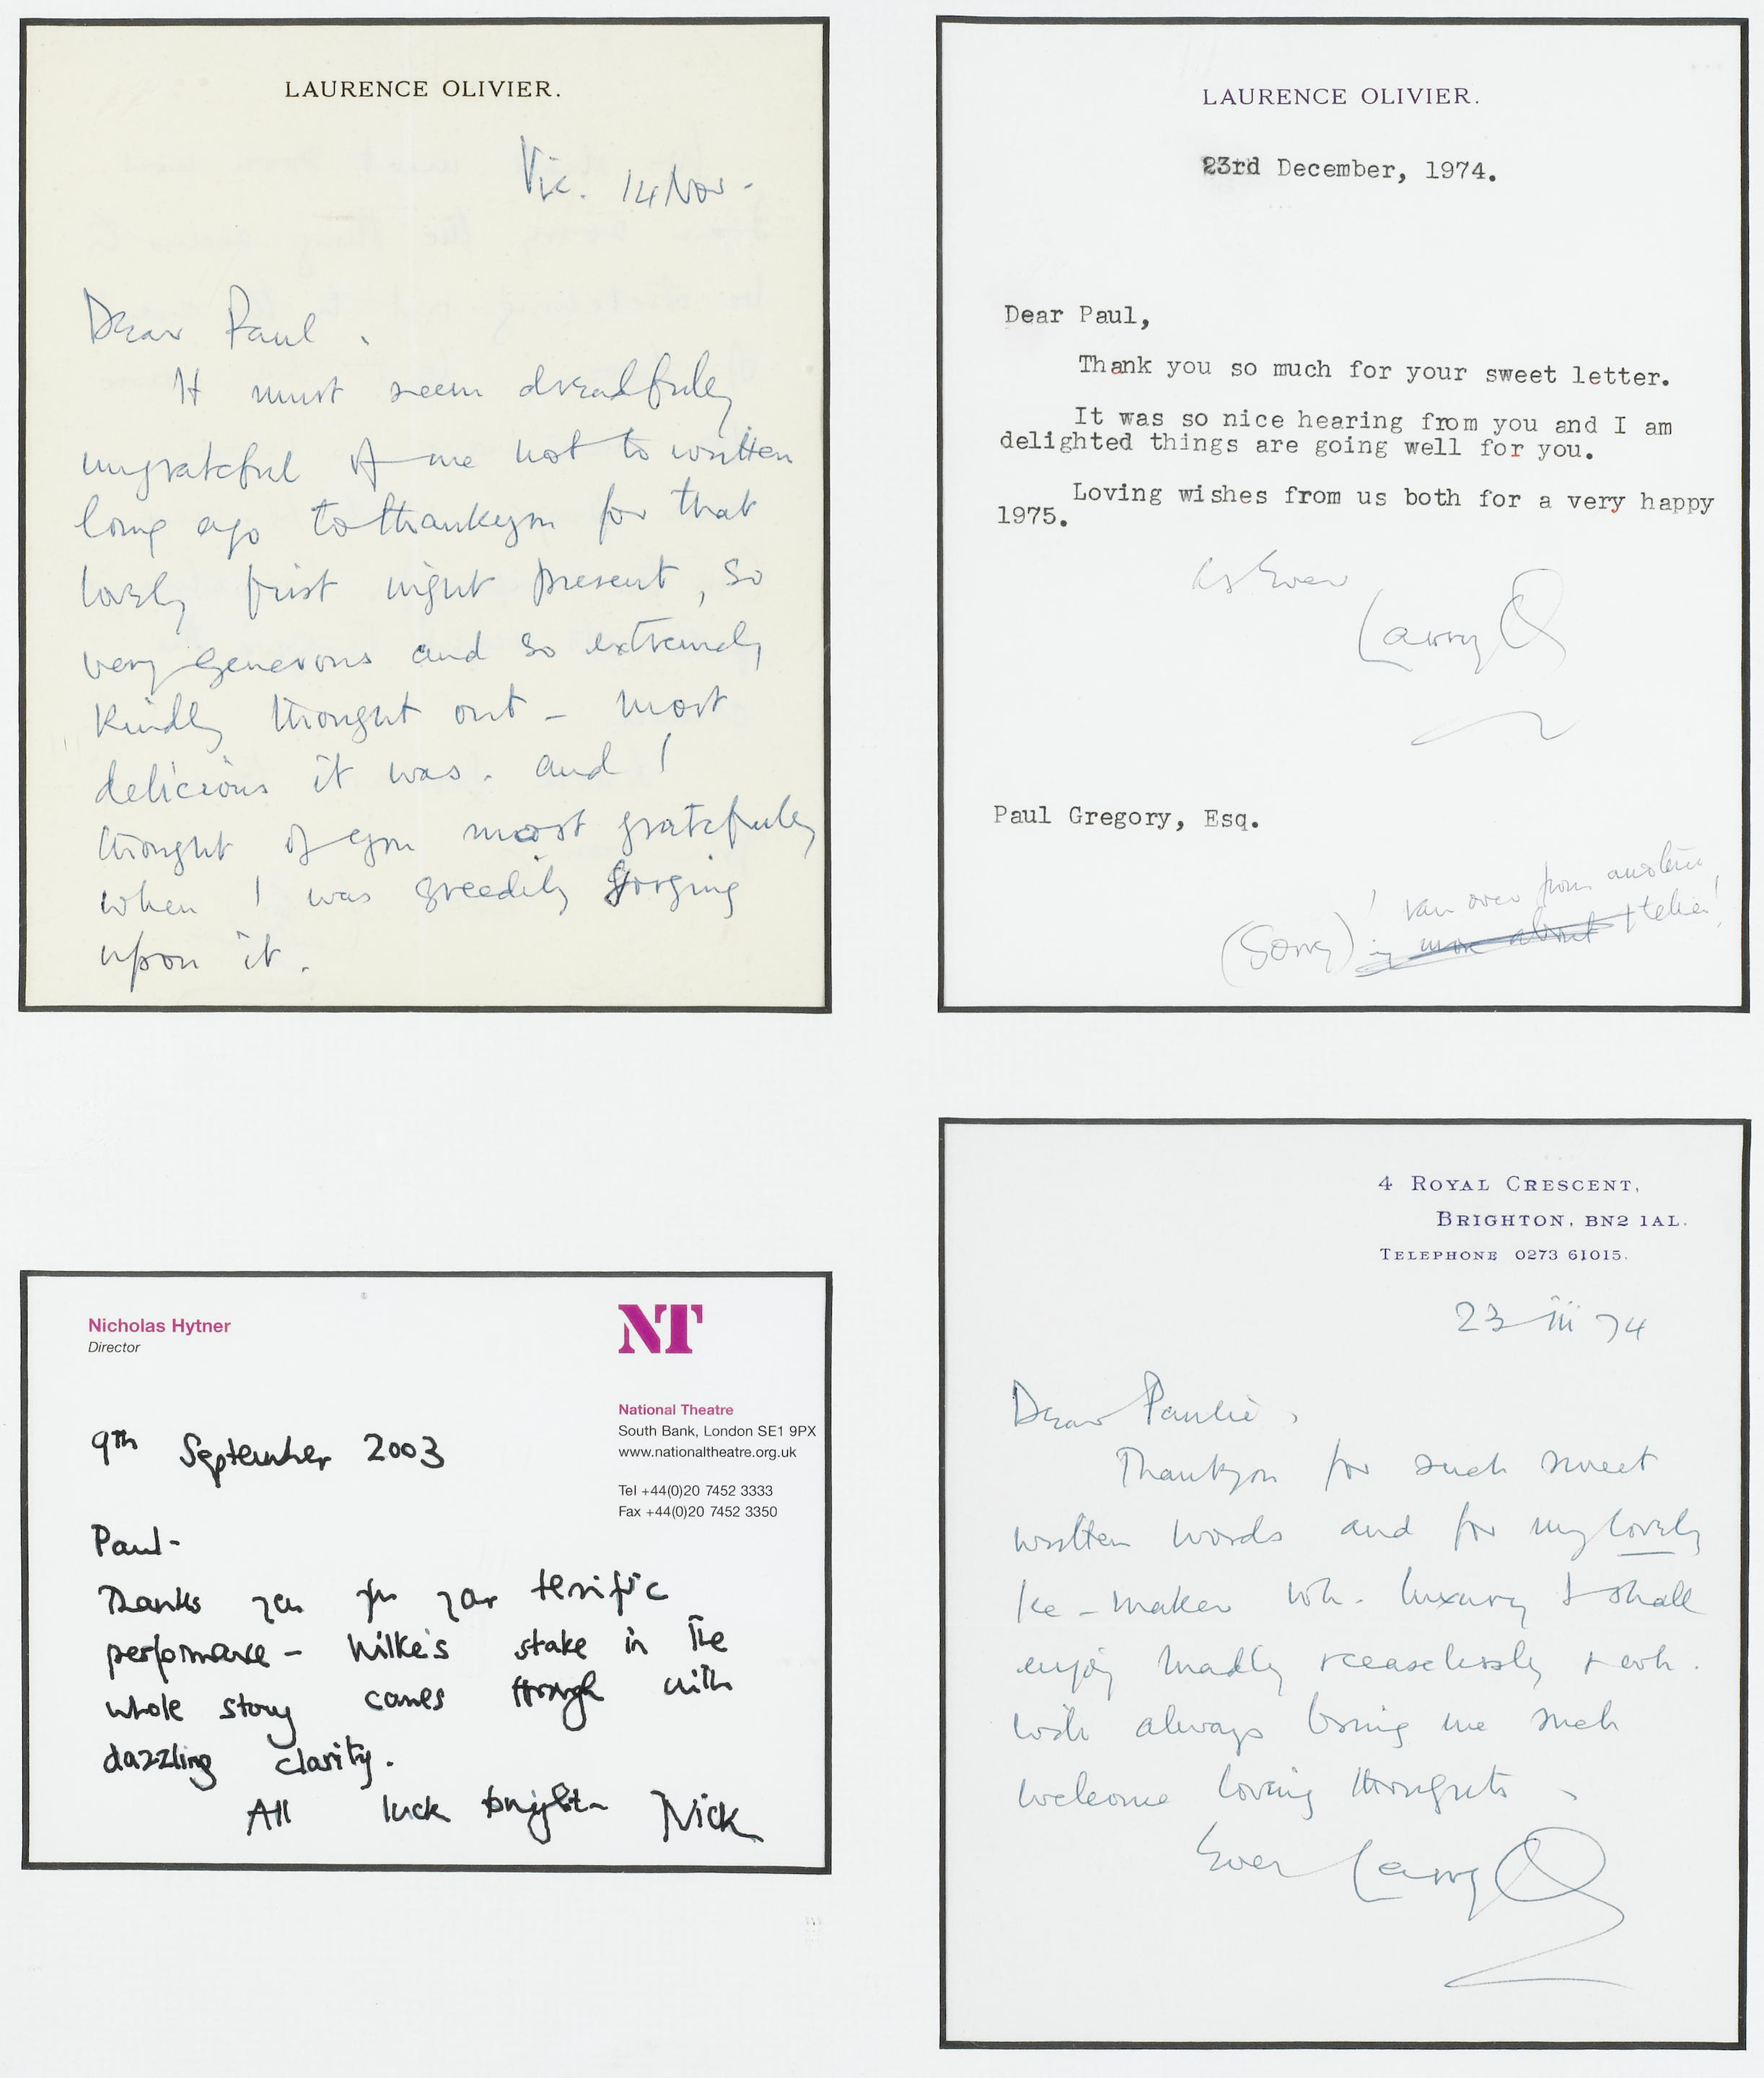 LAURENCE OLIVIER.
Vic. 14 Nov.
Dear Paul.
It must seem dreadfully
ungrateful of me not to written
long ago to thankyou for that
lovely first night present, so
very generous and so extremely
kindly thought out - most
delicious it was. and I
thought of you most gratefully
when I was greedily gorging
upon it.
LAURENCE OLIVIER.
23rd December, 1974.
Dear Paul,
Thank you so much for your sweet letter.
It was so nice hearing from you and I am
delighted things are going well for you.
Loving wishes from us both for a very happy
1975.
As Ever
Larry O
Paul Gregory, Esq.
I ran over from another
(Sorry) letter!
Nicholas Hytner
Director
NT
National Theatre
South Bank, London SE1 9PX
www.nationaltheatre.org.uk
Tel +44(0)20 7452 3333
Fax +44(0)20 7452 3350
9th September 2003
Paul-
Thanks you for your terrific
performance - Wilke's stake in the
whole story comes through with
dazzling clarity.
All luck tonight- Nick
4 ROYAL CRESCENT,
BRIGHTON, BN2 1AL.
TELEPHONE 0273 61015.
23 iii 74
Dear Paulie,
Thankyou for such sweet
written words and for my lovely
Ice-maker wh. luxury I shall
enjoy madly ceaselessly + wh.
will always bring me such
welcome loving thoughts.
Ever Larry O